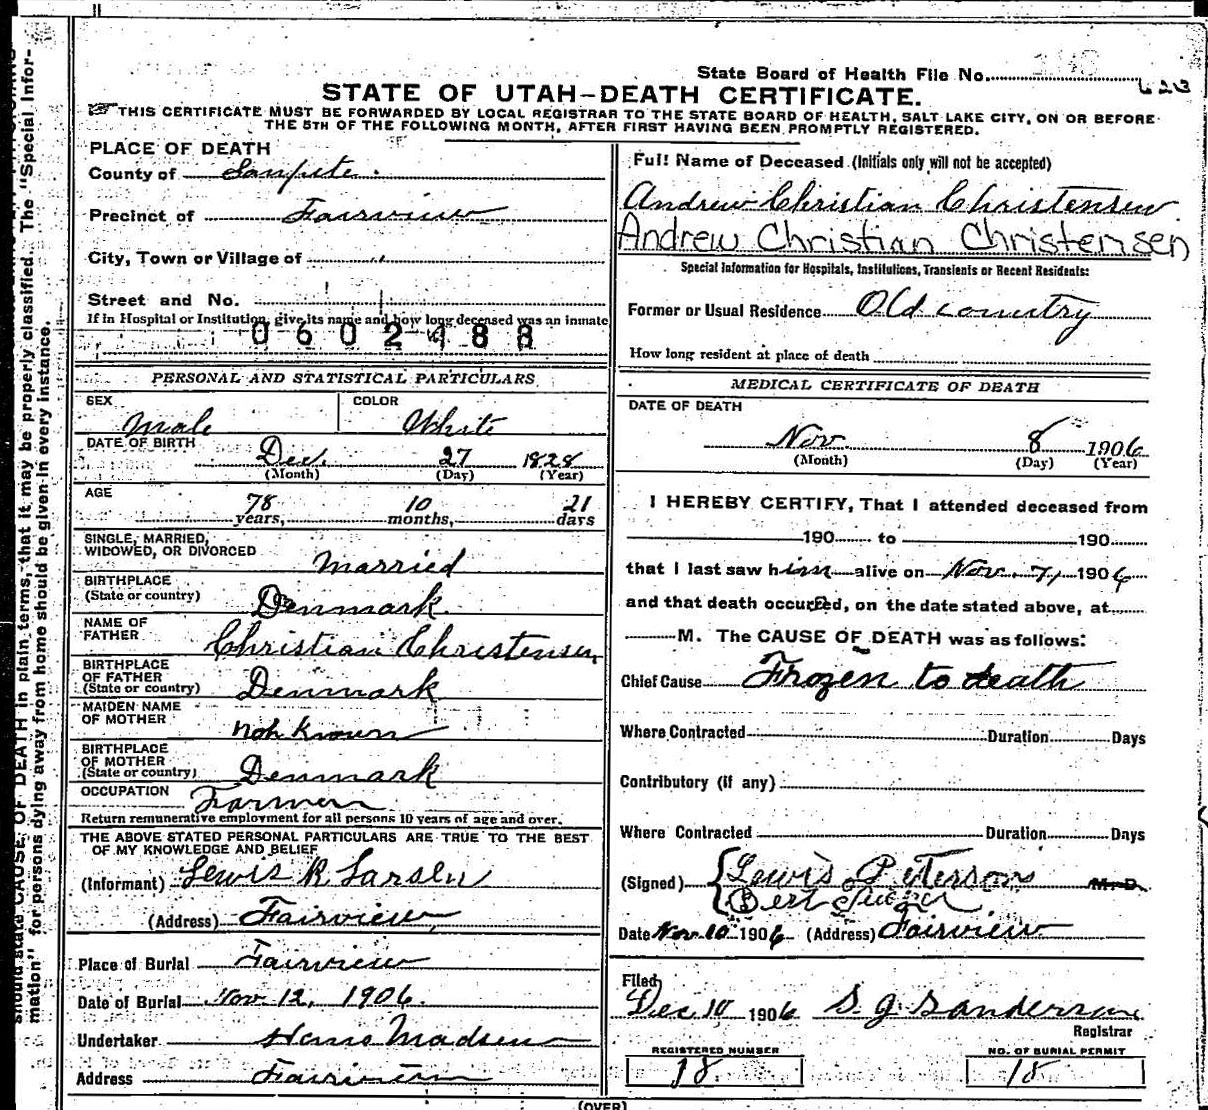 State Board of Health File No.
623
STATE OF UTAH—DEATH CERTIFICATE.
THIS CERTIFICATE MUST BE FORWARDED BY LOCAL REGISTRAR TO THE STATE BOARD OF HEALTH, SALT LAKE CITY, ON OR BEFORE
THE 5TH OF THE FOLLOWING MONTH, AFTER FIRST HAVING BEEN PROMPTLY REGISTERED.
PLACE OF DEATH
County of Sanpete.
Precinct of Fairview
City, Town or Village of "
Street and No.
If in Hospital or Institution, give its name and how long deceased was an inmate
0602488
PERSONAL AND STATISTICAL PARTICULARS
SEX Male
COLOR White
DATE OF BIRTH Dec. 27 1828
(Month) (Day) (Year)
AGE 78 years, 10 months, 21 days
SINGLE, MARRIED,
WIDOWED, OR DIVORCED Married
BIRTHPLACE
(State or country) Denmark
NAME OF
FATHER Christian Christensen
BIRTHPLACE
OF FATHER
(State or country) Denmark
MAIDEN NAME
OF MOTHER not Known
BIRTHPLACE
OF MOTHER
(State or country) Denmark
OCCUPATION Farmer
Return remunerative employment for all persons 10 years of age and over.
THE ABOVE STATED PERSONAL PARTICULARS ARE TRUE TO THE BEST
OF MY KNOWLEDGE AND BELIEF
(Informant) Lewis R Larsen
(Address) Fairview
Place of Burial Fairview
Date of Burial Nov 12, 1906.
Undertaker Hans Madsen
Address Fairview
Full Name of Deceased (Initials only will not be accepted)
Andrew Christian Christensen
Andrew Christian Christensen
Special Information for Hospitals, Institutions, Transients or Recent Residents:
Former or Usual Residence Old country
How long resident at place of death
MEDICAL CERTIFICATE OF DEATH
DATE OF DEATH
Nov 8 1906
(Month) (Day) (Year)
I HEREBY CERTIFY, That I attended deceased from
190 to 190
that I last saw him alive on Nov. 7, 1906
and that death occurred, on the date stated above, at
M. The CAUSE OF DEATH was as follows:
Chief Cause Frozen to death
Where Contracted Duration Days
Contributory (if any)
Where Contracted Duration Days
(Signed) Lewis Peterson M.D.
Bert
Date Nov 10 1906 (Address) Fairview
Filed
Dec 10 1906 S. J. Sanderson
Registrar
REGISTERED NUMBER
18
NO. OF BURIAL PERMIT
18
(OVER)
should state CAUSE OF DEATH in plain terms, that it may be properly classified. The "Special Infor-
mation" for persons dying away from home should be given in every instance.